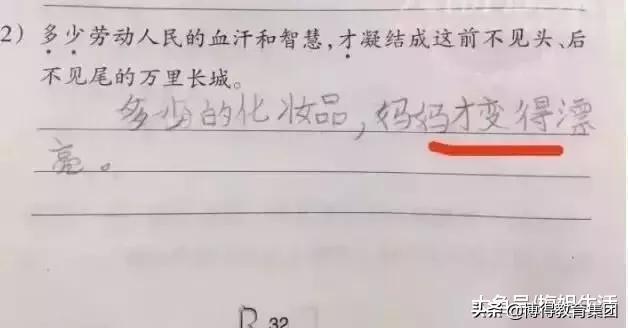 2）多少劳动人民的血汗和智慧,才凝结成这前不见头、后
不见尾的万里长城。
多少的化妆品,妈妈才变得漂
亮。
32
头条 @博得教育集团